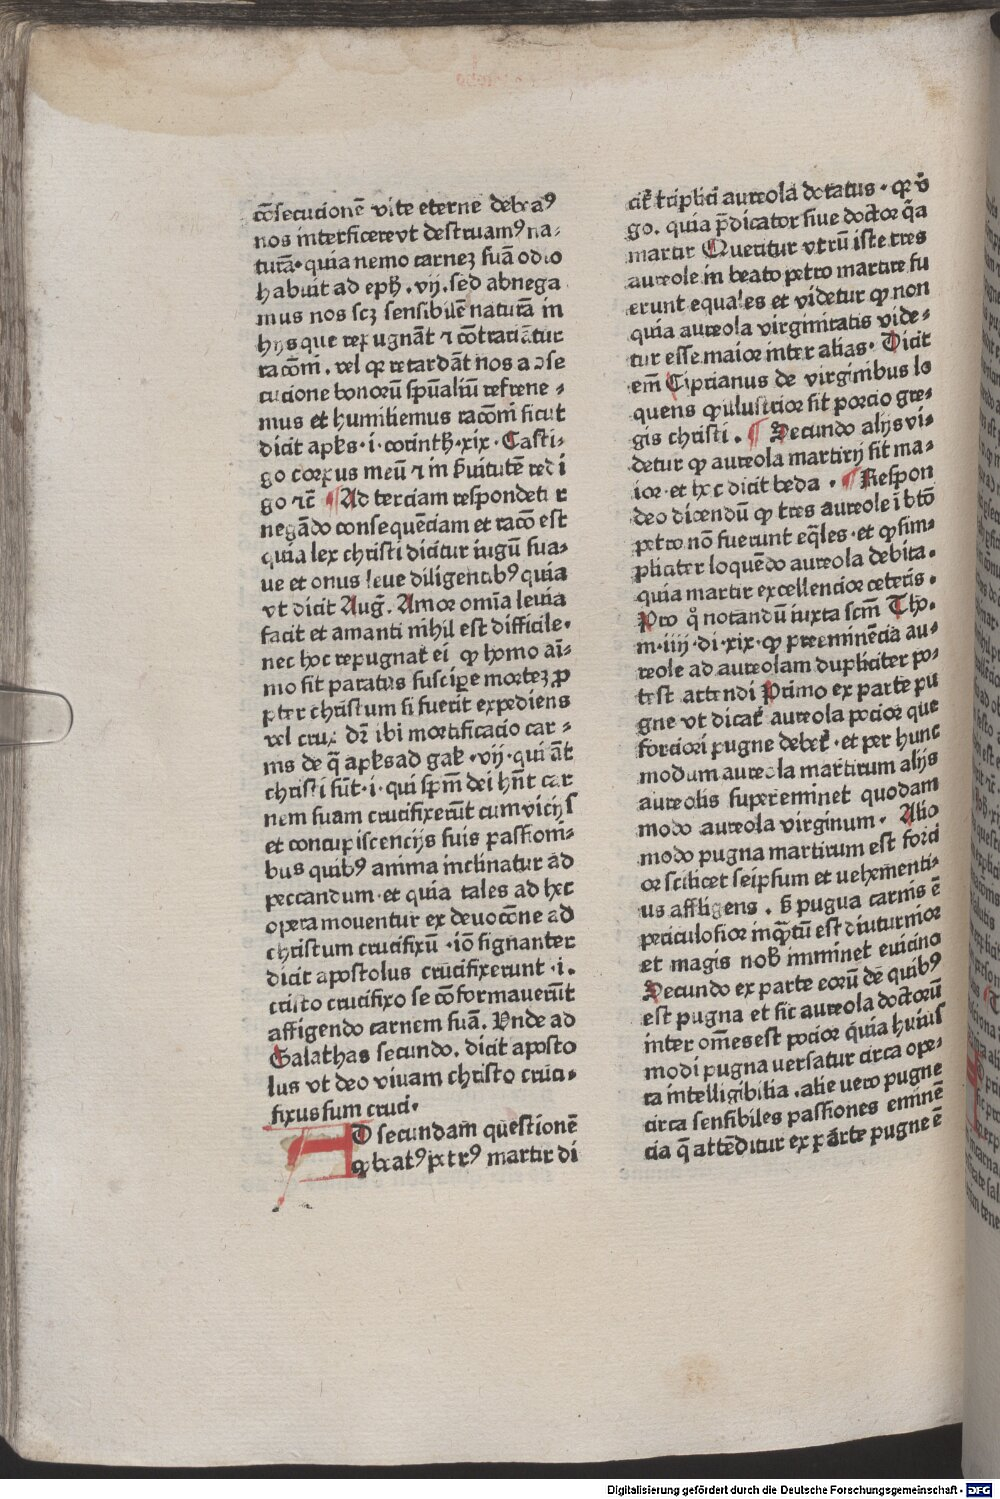 cōsecucionē vite eterne debeaꝰ
nos interficere vt destruamꝰ na⸗
turā. quia nemo carneꝫ suā odio
habuit ad eph̄. vij. sed abnega
mus nos scꝫ sensibilē naturā in
hijs que repugnāt ⁊ cōtrariātur
racōni. vel qꝛ retardāt nos a ɔse
cucione bonorū sp̄ualiū refrene⸗
mus et humiliemus racōni sicut
dicit apl̄s. i. corinth̄. xix. Casti⸗
go corpus meū ⁊ in ẜuitutē redi
go ⁊c̄ ¶ Ad terciam respondetur
negādo consequēciam et racō est
quia lex christi dicitur iugū sua⸗
ue et onus leue diligentibꝰ quia
vt dicit Augꝰ. Amor omīa leuia
facit et amanti nihil est difficile.
nec hoc repugnat ei qꝙ homo aīi⸗
mo sit paratus suscipe morteꝫ ꝓ
pter christum si fuerit expediens
vel crux dr̄ ibi mortificacio car⸗
nis de q̄ apl̄s ad gal̄. vij. qui āt
christi sūt. i. qui spm̄ dei hn̄t car
nem suam crucifixerūt cum vicijs
et concupiscencijs suis passioni⸗
bus quibꝰ anima inclinatur ad
peccandum. et quia tales ad hec
opera moventur ex deuocōne ad
christum crucifixū. iō signanter
dicit apostolus crucifixerunt. i.
cristo crucifixo se cōformauerūt
affigendo carnem suā. Vnde ad
Galathas secundo. dicit aposto
lus vt deo viuam christo cruci⸗
fixus sum cruci.
AD secundam questionē
qꝛ beatꝰ petrꝰ martir di
cit̄ triplici aureola dotatus. qꝛ v̄
go. quia p̄dicator siue doctor q̄a
martir Queritur vtrū iste tres
aureole in beato petro martire fu
erunt equales et videtur qꝙ non
quia aureola virginitatis vide⸗
tur esse maior inter alias. Dicit
em̄ Ciprianus de virginibus lo
quens qꝙ ilustrior sit porcio gre⸗
gis christi. ¶ Secundo alijs vi⸗
detur qꝙ aureola martirij sit ma⸗
ior. et hec dicit beda. ¶ Respon
deo dicendū qꝙ tres aureole ī btō
petro nō fuerunt eq̄les. et qꝙ sim⸗
pliciter loquēdo aureola debita.
quia martir excellencior ceteris.
Pro qͦ notandū iuxta scm̄ Tho.
m. iiij. di. xix. qꝙ preeminēcia au⸗
reole ad aureolam dupliciter po⸗
test attendi Primo ex parte pu
gne vt dicat̄ aureola pocior que
forciori pugne debet̄. et per hunc
modum aureola martirum alijs
aureolis supereminet quodam
modo aureola virginum. Alio
modo pugna martirum est forci
or scilicet seipsum et uehementi⸗
us affligens. ẜ pugua carnis ē
periculosior inqͣtū est diuturnior
et magis nob̄ imminet euicino
Secundo ex parte eorū de quibꝰ
est pugna et sic aureola doctorū
inter omēs est pocior quia huius
modi pugna uersatur circa ope⸗
ra intelligibilia. alie uero pugne
circa sensibiles passiones eminē
cia q̄ attēditur ex parte pugne ē
Digitalisierung gefördert durch die Deutsche Forschungsgemeinschaft - DFG